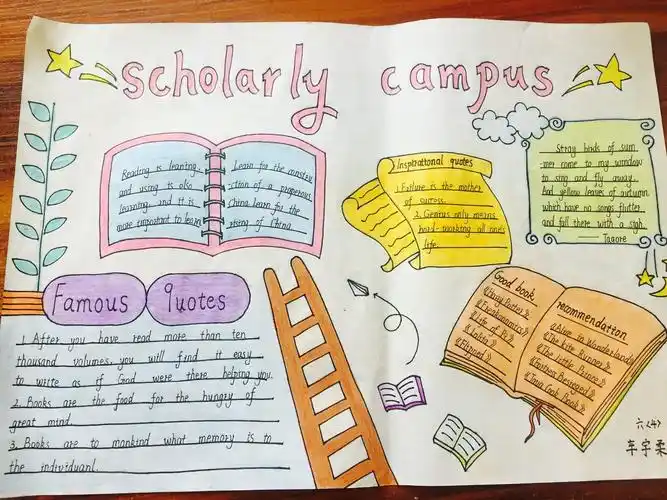 scholarly campus
Reading is learning,
and using is also
learning, and it is
more important to learn
Learn for the constru
-ction of a prosperous
China, learn for the
rising of China
Inspirational quotes
1. Failure is the mother
of success.
2. Genius only means
hard-working all one's
life.
Stray birds of sum
-mer come to my window
to sing and fly away.
And yellow leaves of autumn
which have no songs flutter
and fall there with a sigh.
—— Tagore
Famous quotes
1. After you have read more than ten
thousand volumes, you will find it easy
to write as if God were there helping you.
2. Books are the food for the hungry of
great mind.
3. Books are to mankind what memory is to
the individuanl.
Good book
《Harry Potter》
《Freakonomics》
《Life of Pi》
《Lolita》
《Flipped》
recommendation
《Alice in Wonderland》
《The Kite Runner》
《The Little Prince》
《Fortress Besieged》
六〈4〉
车宇柔